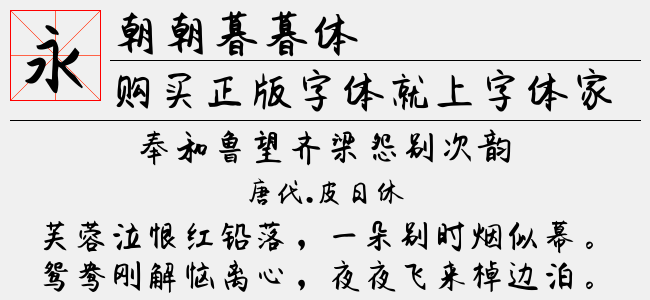 永
朝朝暮暮体
购买正版字体就上字体家
奉和鲁望齐梁怨别次韵
唐代.皮日休
芙蓉泣恨红铅落，一朵别时烟似幕。
鸳鸯刚解恼离心，夜夜飞来棹边泊。